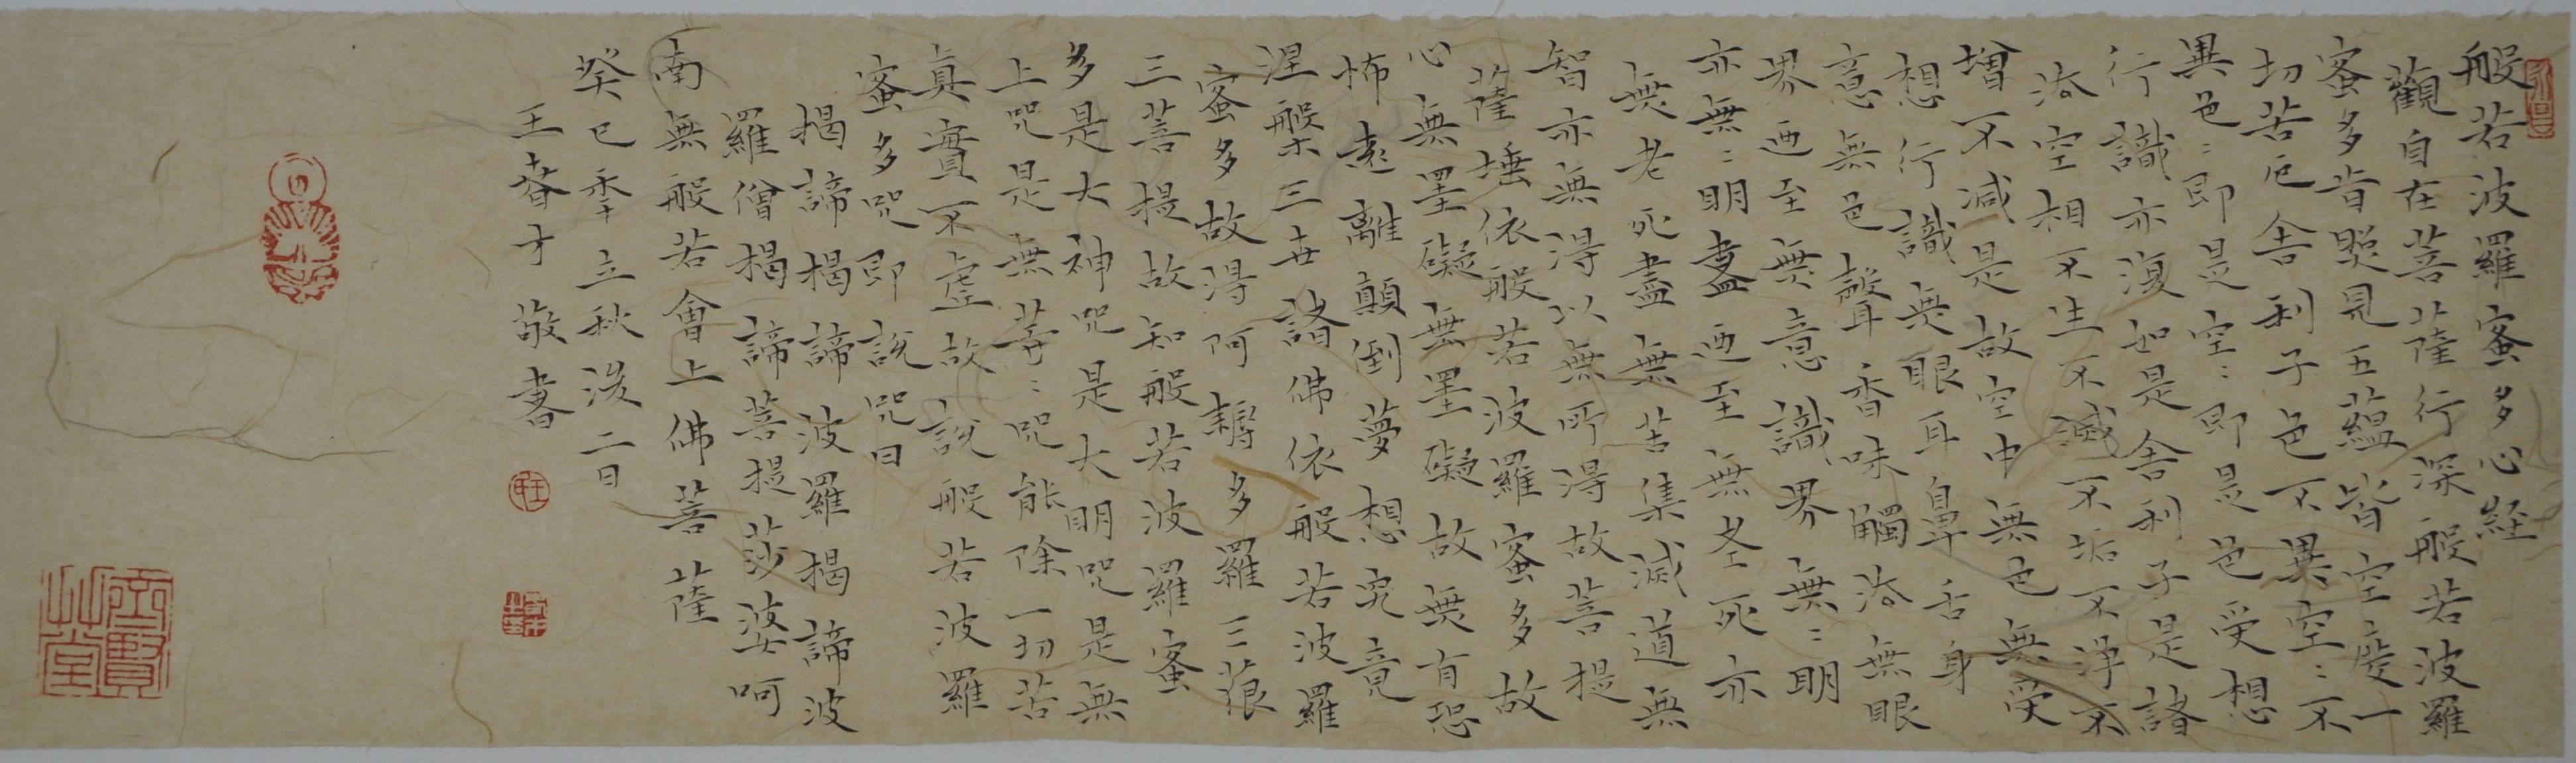 般若波羅蜜多心経
觀自在菩薩行深般若波羅
蜜多旹照見五蘊皆空度一
切苦厄舍利子色不異空〻不
異色〻即是空〻即是色受想
行識亦復如是舍利子是諸
法空相不生不滅不垢不淨不
增不减是故空中無色無受
想行識無眼耳鼻舌身
意無色聲香味觸法無眼
界迺至無意識界無〻明
亦無〻明盡迺至無老死亦
無老死盡無苦集滅道無
智亦無得以無所得故菩提
薩埵依般若波羅蜜多故
心無罣礙無罣礙故無有恐
怖遠離顛倒夢想究竟
涅槃三世諸佛依般若波羅
蜜多故得阿耨多羅三藐
三菩提故知般若波羅蜜
多是大神咒是大明咒是無
上咒是無等〻咒能除一切苦
真實不虛故說般若波羅
蜜多咒即說咒曰
揭諦揭諦波羅揭諦波
羅僧揭諦菩提莎婆呵
南無般若會上佛菩薩
癸巳季立秋後二日
王春才 敬書
王
齊賢
堂